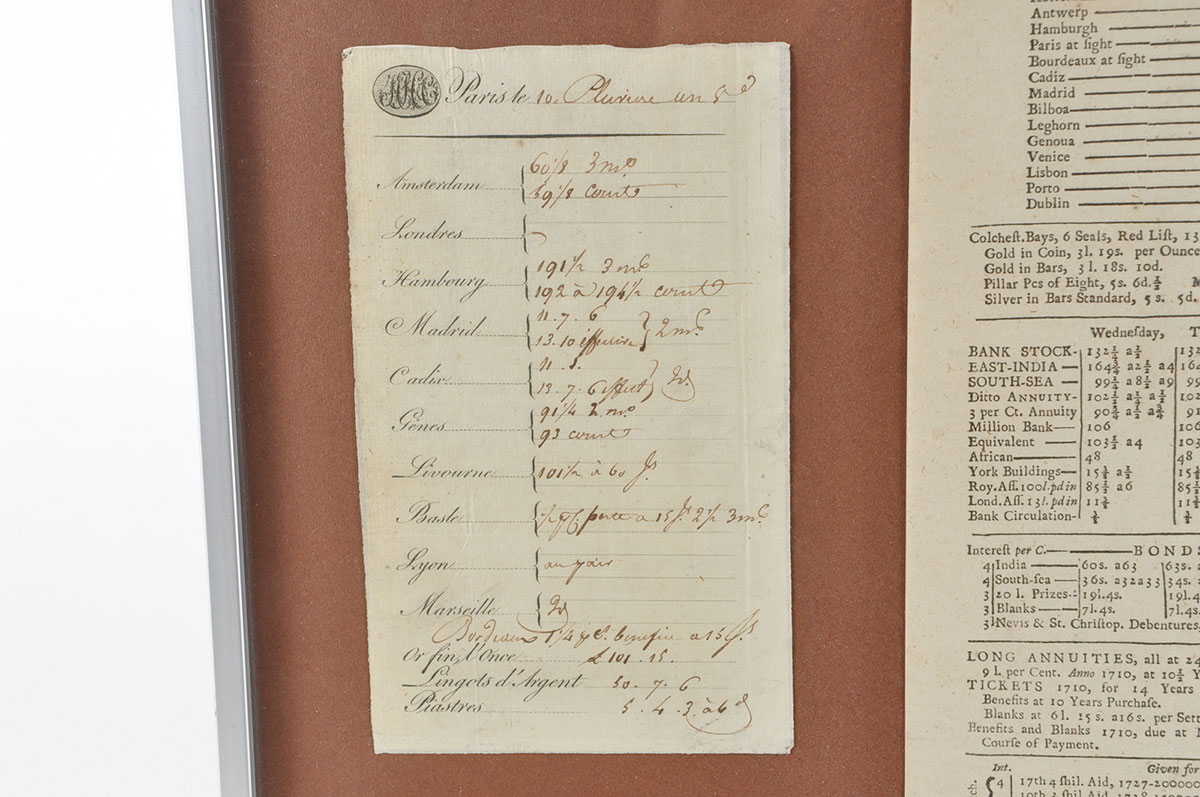 Paris le 10 Pluviose an 5
Amsterdam 60 1/8 3 mo
59 1/8 court
Londres
Hambourg 191 1/2 3 mo
192 à 194 1/2 court
Madrid 11. 7. 6
13. 10 effective 2 mo
Cadix
13. 7. 6 effect
Gênes 91 1/4 2 mo
93 court
Livourne 101 1/2 à 60 js
Basle perte à 15 js 2 1/2 3 mo
Lyon au pair
Marseille
Bordeaux 1 1/4 benefice a 15 js
Or fin, l'Once £ 101. 15.
Lingots d'Argent 50. 7. 6
Piastres 5. 4. 3. à 6 d
Antwerp
Hamburgh
Paris at ſight
Bourdeaux at ſight
Cadiz
Madrid
Bilboa
Leghorn
Genoua
Venice
Lisbon
Porto
Dublin
Colcheſt. Bays, 6 Seals, Red Liſt, 13
Gold in Coin, 3l. 19s. per Ounce
Gold in Bars, 3l. 18s. 10d.
Pillar Pcs of Eight, 5s. 6d.½ M
Silver in Bars Standard, 5 s. 5d.
Wedneſday, T
BANK STOCK- 132½ a½ 132
EAST-INDIA — 164¾ a2½ a4 164
SOUTH-SEA — 99¼ a8½ a9 99
Ditto ANNUITY- 102½ a¼ a½ 102
3 per Ct. Annuity 90¾ a½ a¾ 91
Million Bank— 106 106
Equivalent — 103½ a4 103
African— 48 48
York Buildings— 15¾ a½ 15
Roy. Aſſ. 100l. pd in 85½ a6 85½
Lond. Aſſ. 13l. pd in 11¾ 11
Bank Circulation-
Intereſt per C.— BONDS
4 India — 60s. a63 63s. a
4 South-ſea — 36s. a32a33 34s. a
3 20 l. Prizes- 19l.4s. 19l.4
3 Blanks — 7l.4s. 7l.4s
3 Nevis & St. Chriſtop. Debentures,
LONG ANNUITIES, all at 24
9 l. per Cent. Anno 1710, at 10½ Y
TICKETS 1710, for 14 Years
Benefits at 10 Years Purchaſe.
Blanks at 6l. 15 s. a16s. per Sett
Benefits and Blanks 1710, due at M
Courſe of Payment.
Int. Given for
4 17th 4 ſhil. Aid, 1727-200000